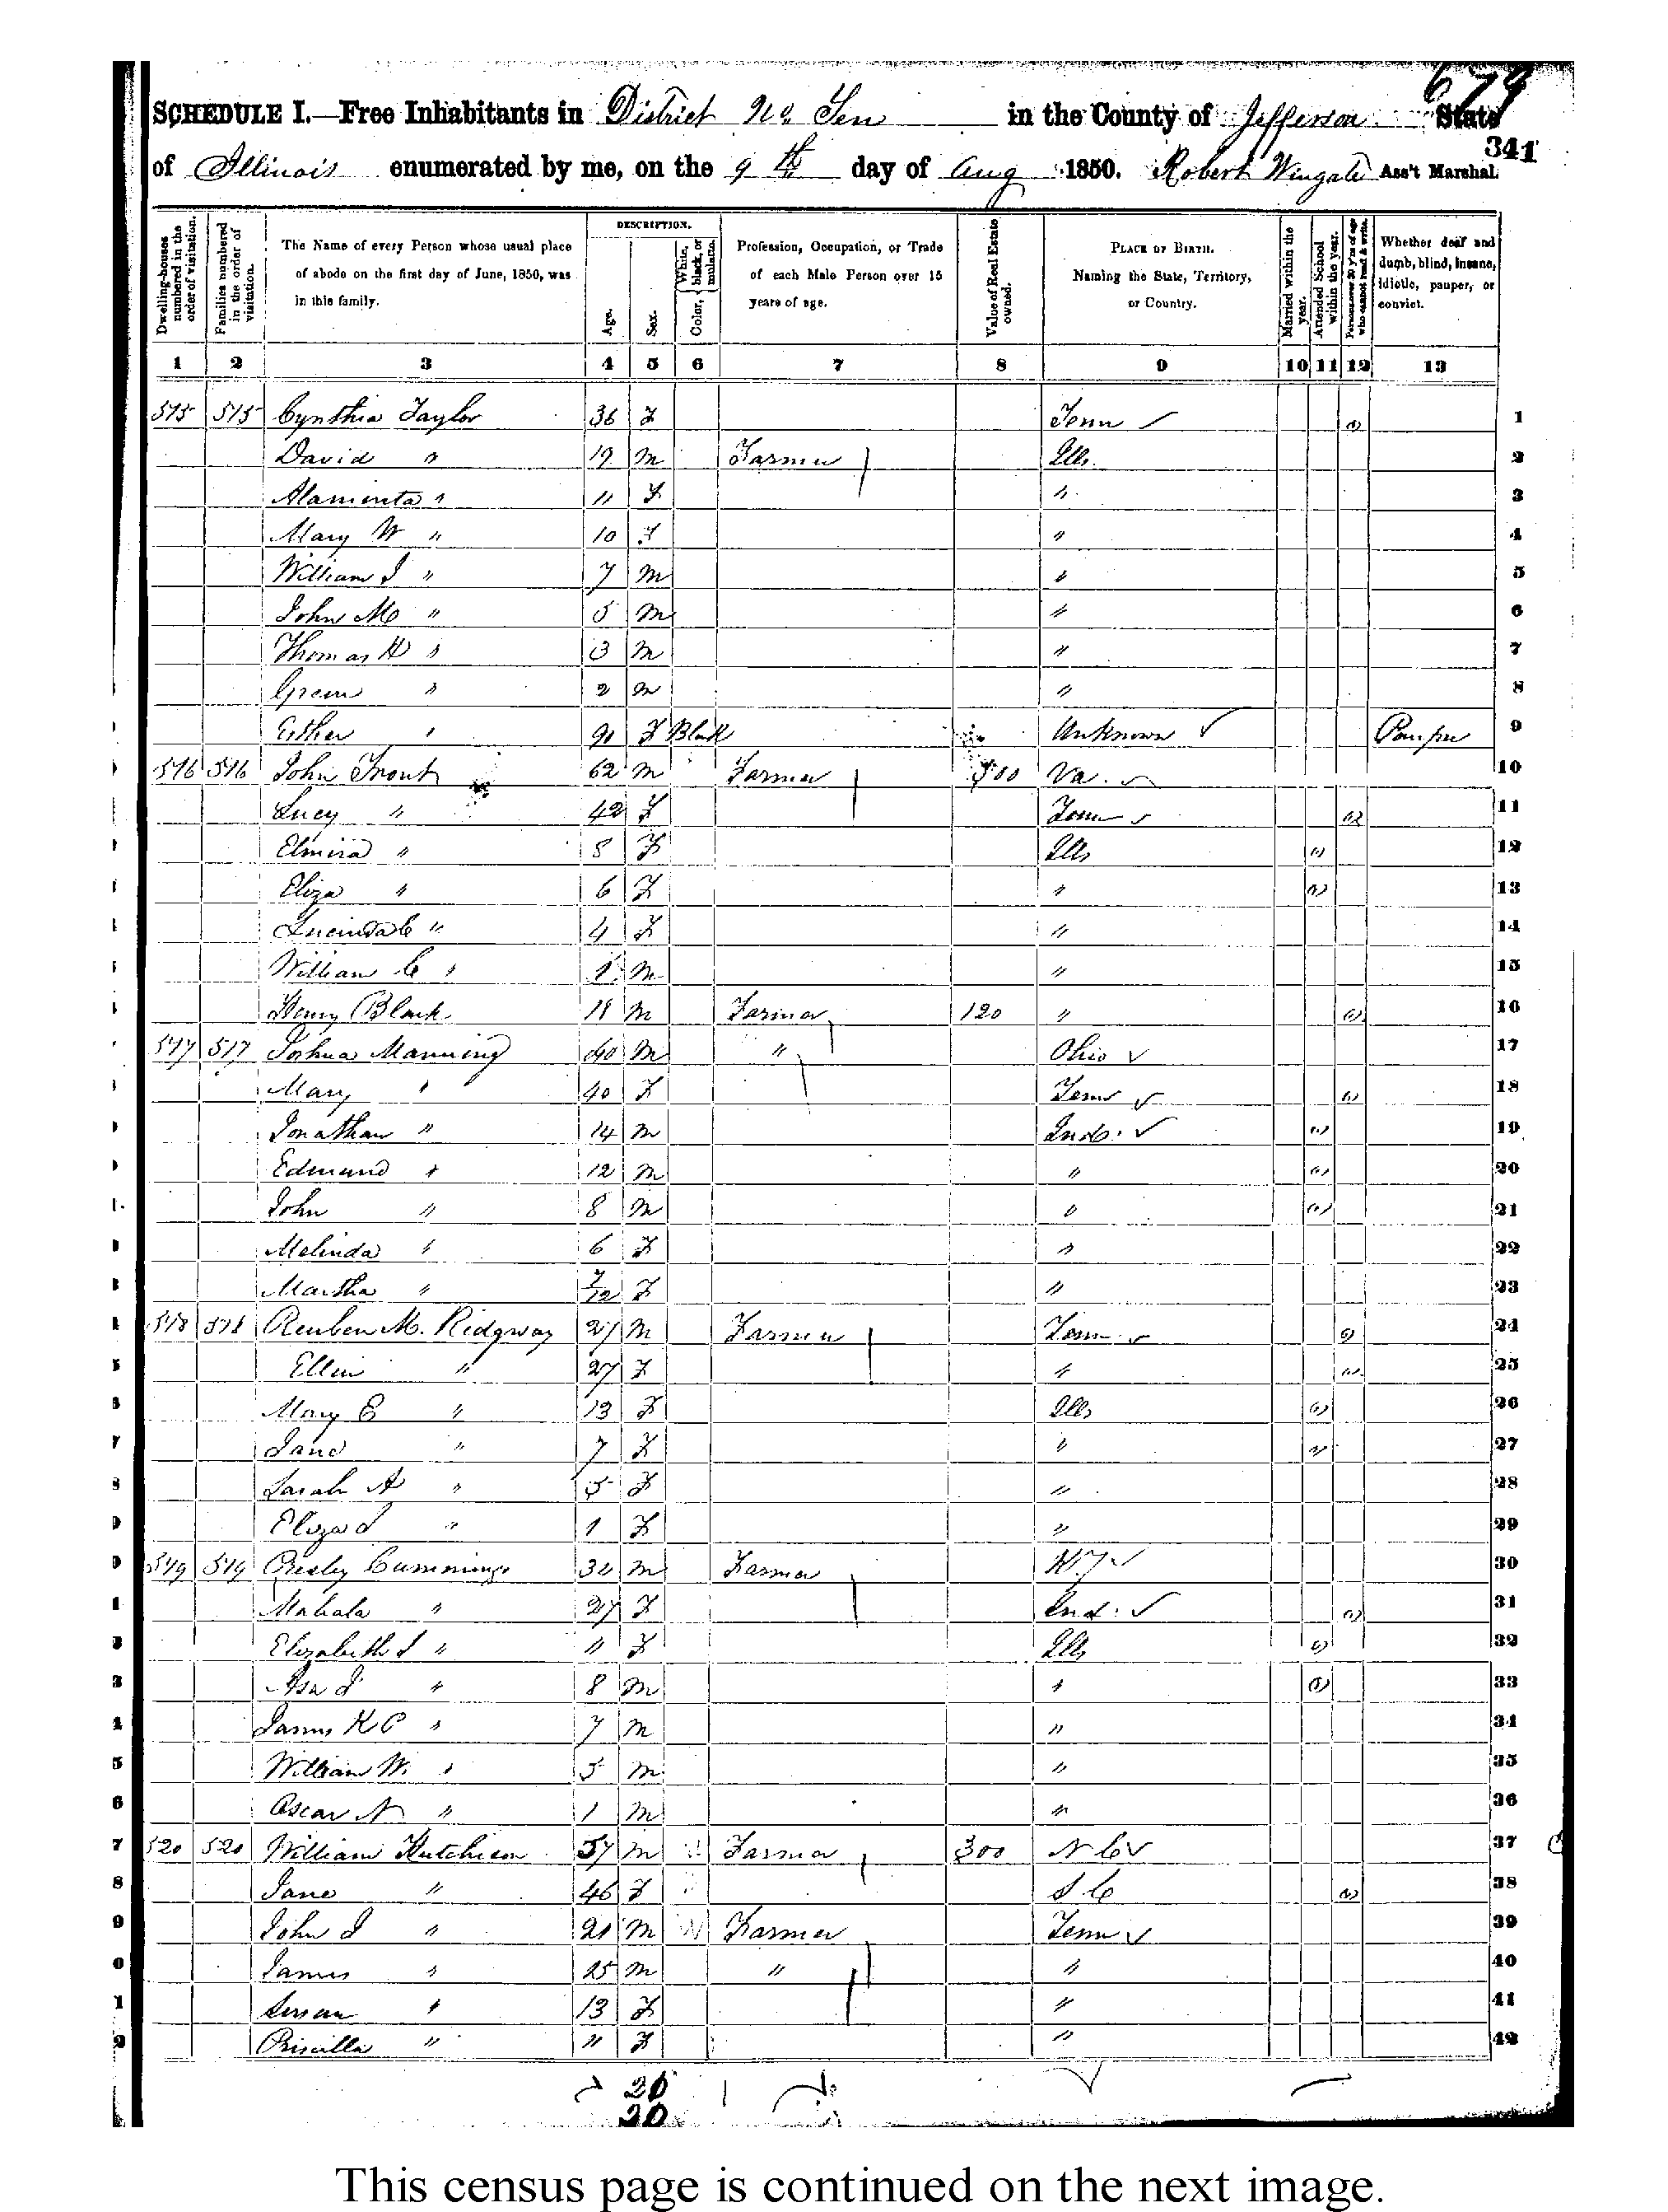 679
SCHEDULE I.—Free Inhabitants in District No. Ten in the County of Jefferson State
341
of Illinois enumerated by me, on the 9th day of Aug 1850. Robert Wingate Ass't Marshal.
Dwelling-houses numbered in the order of visitation.
Families numbered in the order of visitation.
The Name of every Person whose usual place of abode on the first day of June, 1850, was in this family.
DESCRIPTION.
Age.
Sex.
Color, { White, black, or mulatto.
Profession, Occupation, or Trade of each Male Person over 15 years of age.
Value of Real Estate owned.
PLACE OF BIRTH. Naming the State, Territory, or Country.
Married within the year.
Attended School within the year.
Persons over 20 y'rs of age who cannot read & write.
Whether deaf and dumb, blind, insane, idiotic, pauper, or convict.
1 2 3 4 5 6 7 8 9 10 11 12 13
515 515 Cynthia Taylor 36 F Tenn 1
David " 19 M Farmer Ills. 2
Alaminta " 11 F " 3
Mary W " 10 F " 4
William J " 7 M " 5
John M " 5 M " 6
Thomas H " 3 M " 7
Green " 2 M " 8
Esther " 90 F Black Unknown Pauper 9
516 516 John Trout 62 M Farmer 500 Va. 10
Lucy " 42 F Tenn 11
Elmira " 8 F Ills 12
Eliza " 6 F " 13
Lucinda C " 4 F " 14
William C " 1 M " 15
Henry Black 18 M Farmer 120 " 16
517 517 Joshua Manning 40 M " Ohio 17
Mary " 40 F Tenn 18
Jonathan " 14 M Ind. 19
Edmund " 12 M " 20
John " 8 M " 21
Melinda " 6 F " 22
Martha " 7/12 F " 23
518 518 Reuben M. Ridgway 27 M Farmer Tenn 24
Ellin " 27 F " 25
Mary E " 13 F Ills 26
Jane " 7 F " 27
Sarah A " 5 F " 28
Eliza J " 1 F " 29
519 519 Presley Cummings 32 M Farmer K.Y 30
Mahala " 27 F Ind. 31
Elizabeth J " 11 F Ills 32
Asa J " 8 M " 33
James K P " 7 M " 34
William W. " 5 M " 35
Oscar N " 1 M " 36
520 520 William Hutchison 57 M Farmer 300 N C 37
Jane " 46 F S. C 38
John J " 21 M W Farmer Tenn 39
James " 25 M " " 40
Susan " 13 F " 41
Priscilla " 11 F " 42
20
20
This census page is continued on the next image.